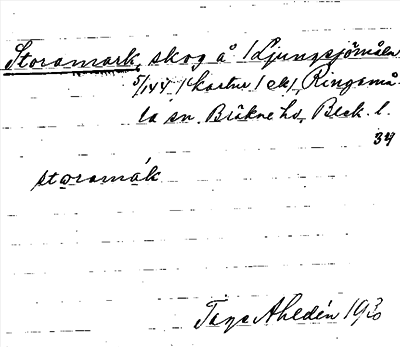 Storamark, skog å /Ljungsjömåla
5/144 /kartnr / ek/, Ringamå-
la sn. Bräkne hd, Blek. l.
34
storamák
Tage Ahldén 1930